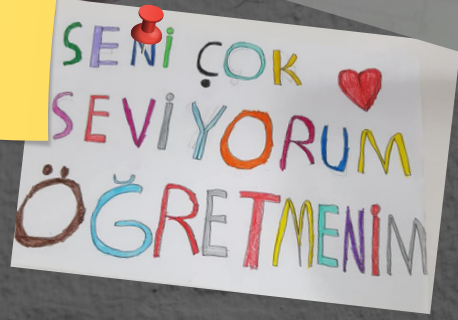 SENİ ÇOK
SEVİYORUM
ÖĞRETMENİM